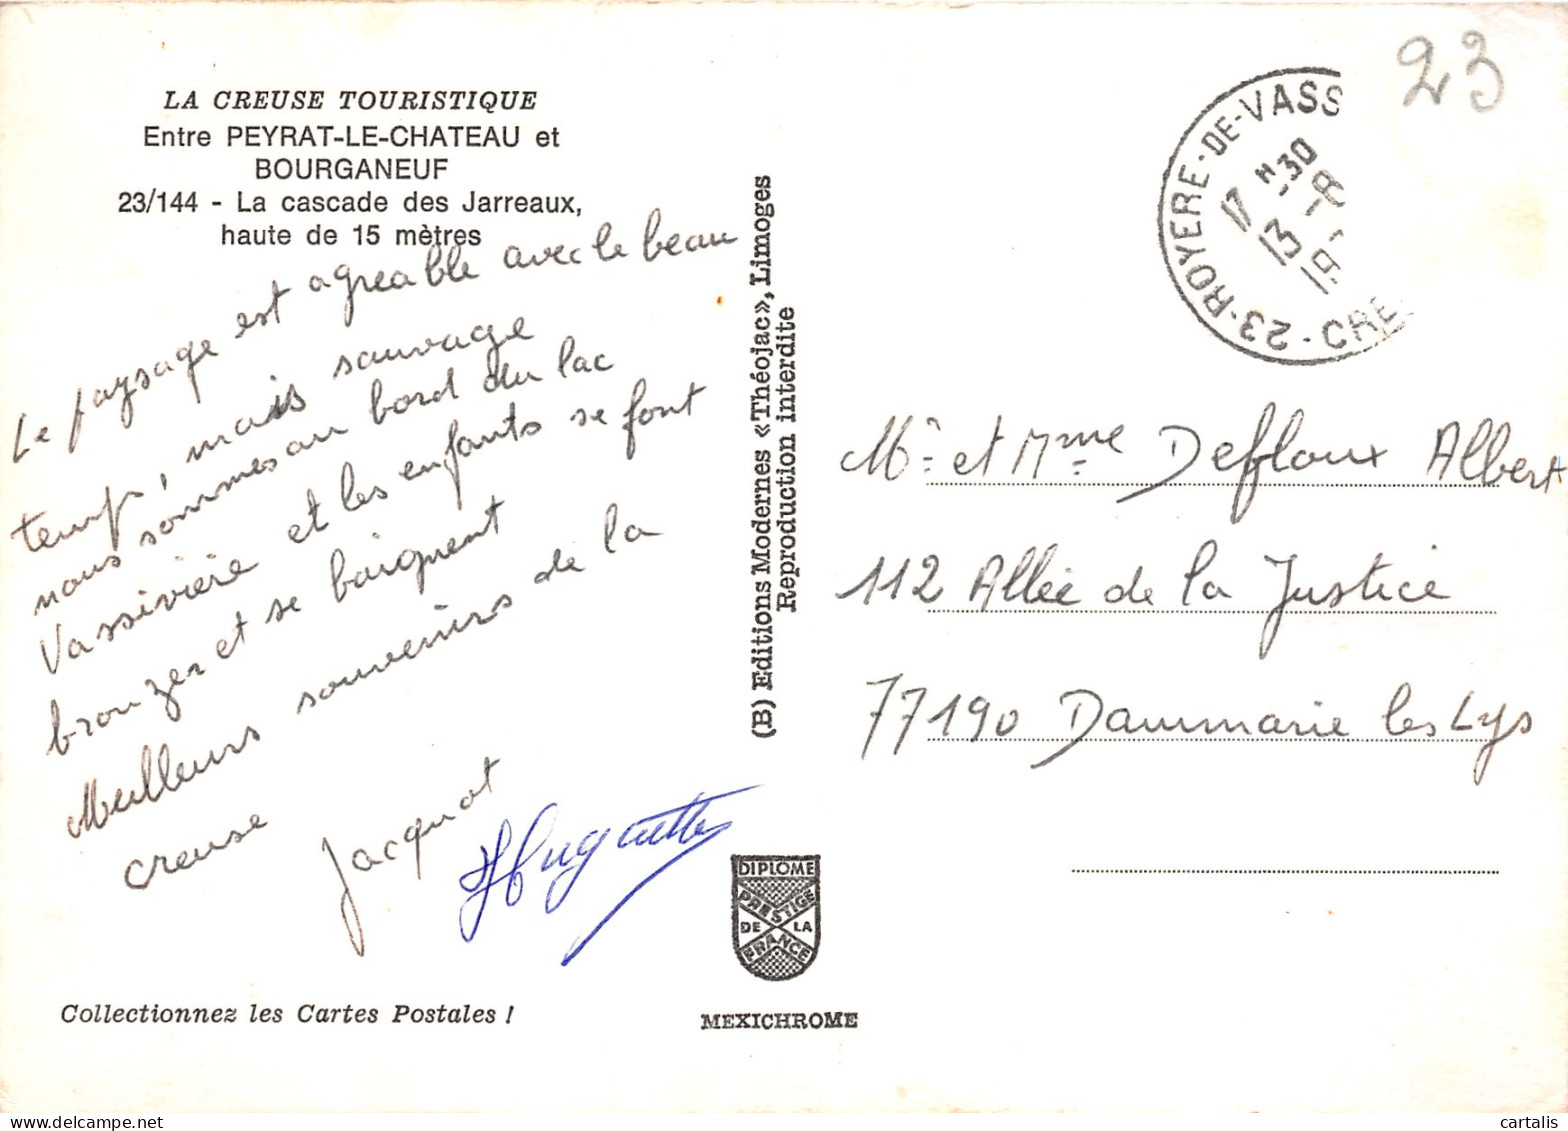 LA CREUSE TOURISTIQUE
Entre PEYRAT-LE-CHATEAU et
BOURGANEUF
23/144 - La cascade des Jarreaux,
haute de 15 mètres
Le paysage est agreable avec le beau
temps, mais sauvage
nous sommes au bord du lac
Vassiviere et les enfants se font
bronzer et se baignent
Meilleurs souvenirs de la
creuse
Jacquot
Huguette
Collectionnez les Cartes Postales !
(B) Editions Modernes «Théojac», Limoges
Reproduction interdite
DIPLOME
PRESTIGE
DE LA
FRANCE
MEXICHROME
23
23·ROYERE·DE·VASS
CRE
17 H 30
13 -8
19
Mr et Mme Defloux Albert
112 Allée de la Justice
77190 Dammarie les Lys
cartalis